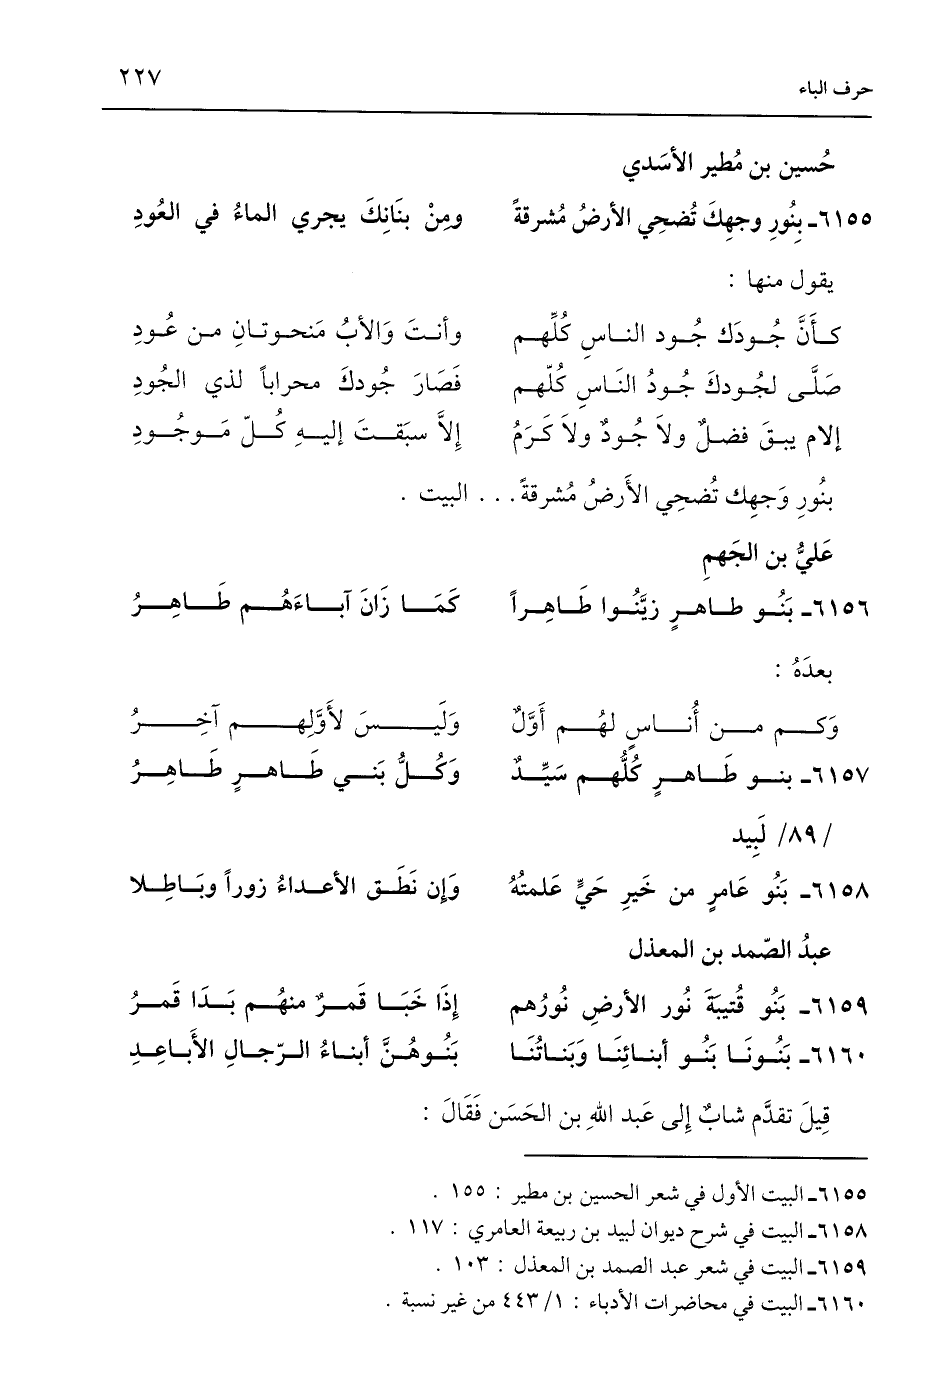 حرف الباء ٢٢٧
حُسين بن مُطير الأسَدي
٦١٥٥ـ بِنُورِ وجهِكَ تُضحِي الأرضُ مُشرقةً ومِنْ بنَانِكَ يجري الماءُ في العُودِ
يقول منها :
كأَنَّ جُودَك جُود الناسِ كُلِّهم وأنتَ وَالأبُ مَنحوتانِ من عُودِ
صَلَّى لجُودكَ جُودُ النَاسِ كُلّهم فَصَارَ جُودكَ محراباً لذي الجُودِ
إلام يبقَ فضلٌ ولاَ جُودٌ ولاَ كَرَمُ إلاَّ سبَقتَ إليهِ كُلّ مَوجُودِ
بنُورِ وَجهِك تُضحِي الأَرضُ مُشرقةً... البيت .
عَليُّ بن الجَهمِ
٦١٥٦ـ بَنُو طاهرٍ زيَّنُوا طَاهِراً كَمَا زَانَ آباءَهُم طَاهِرُ
بعدَهُ :
وَكم من أُناسٍ لهُم أَوَّلٌ وَلَيسَ لأَوَّلِهم آخِرُ
٦١٥٧ـ بنو طَاهرٍ كُلُّهم سَيِّدٌ وَكُلُّ بَني طَاهرٍ طَاهِرُ
/ ٨٩/ لَبِيد
٦١٥٨ـ بَنُو عَامرٍ من خَيرِ حَيٍّ عَلمتُهُ وَإن نَطَق الأعداءُ زوراً وبَاطِلا
عبدُ الصّمد بن المعذل
٦١٥٩ـ بَنُو قُتيبَةَ نُور الأرضِ نُورُهم إذَا خَبَا قَمرٌ منهُم بَدَا قَمرُ
٦١٦٠ـ بَنُونَا بَنُو أبنائِنَا وَبَناتُنَا بَنُوهُنَّ أبناءُ الرّجالِ الأَباعِدِ
قِيلَ تقدَّم شابٌ إلى عَبد اللهِ بن الحَسَن فَقَالَ :
٦١٥٥ـ البيت الأول في شعر الحسين بن مطير : ١٥٥ .
٦١٥٨ـ البيت في شرح ديوان لبيد بن ربيعة العامري : ١١٧ .
٦١٥٩ـ البيت في شعر عبد الصمد بن المعذل : ١٠٣ .
٦١٦٠ـ البيت في محاضرات الأدباء : ١/ ٤٤٣ من غير نسبة .